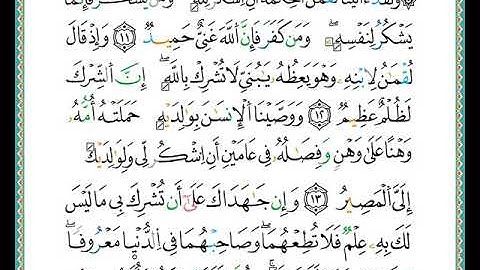 يَشْكُرُ لِنَفْسِهِۦ وَمَن كَفَرَ فَإِنَّ ٱللَّهَ غَنِىٌّ حَمِيدٌ ١١ وَإِذْ قَالَ
لُقْمَٰنُ لِٱبْنِهِۦ وَهُوَ يَعِظُهُۥ يَٰبُنَىِّ لَا تُشْرِكْ بِٱللَّهِ إِنَّ ٱلشِّرْكَ
لَظُلْمٌ عَظِيمٌ ١٢ وَوَصَّيْنَا ٱلْإِنسَٰنَ بِوَٰلِدَيْهِ حَمَلَتْهُ أُمُّهُۥ
وَهْنًا عَلَىٰ وَهْنٍ وَفِصَٰلُهُۥ فِى عَامَيْنِ أَنِ ٱشْكُرْ لِى وَلِوَٰلِدَيْكَ
إِلَىَّ ٱلْمَصِيرُ ١٣ وَإِن جَٰهَدَاكَ عَلَىٰٓ أَن تُشْرِكَ بِى مَا لَيْسَ
لَكَ بِهِۦ عِلْمٌ فَلَا تُطِعْهُمَا وَصَاحِبْهُمَا فِى ٱلدُّنْيَا مَعْرُوفًا